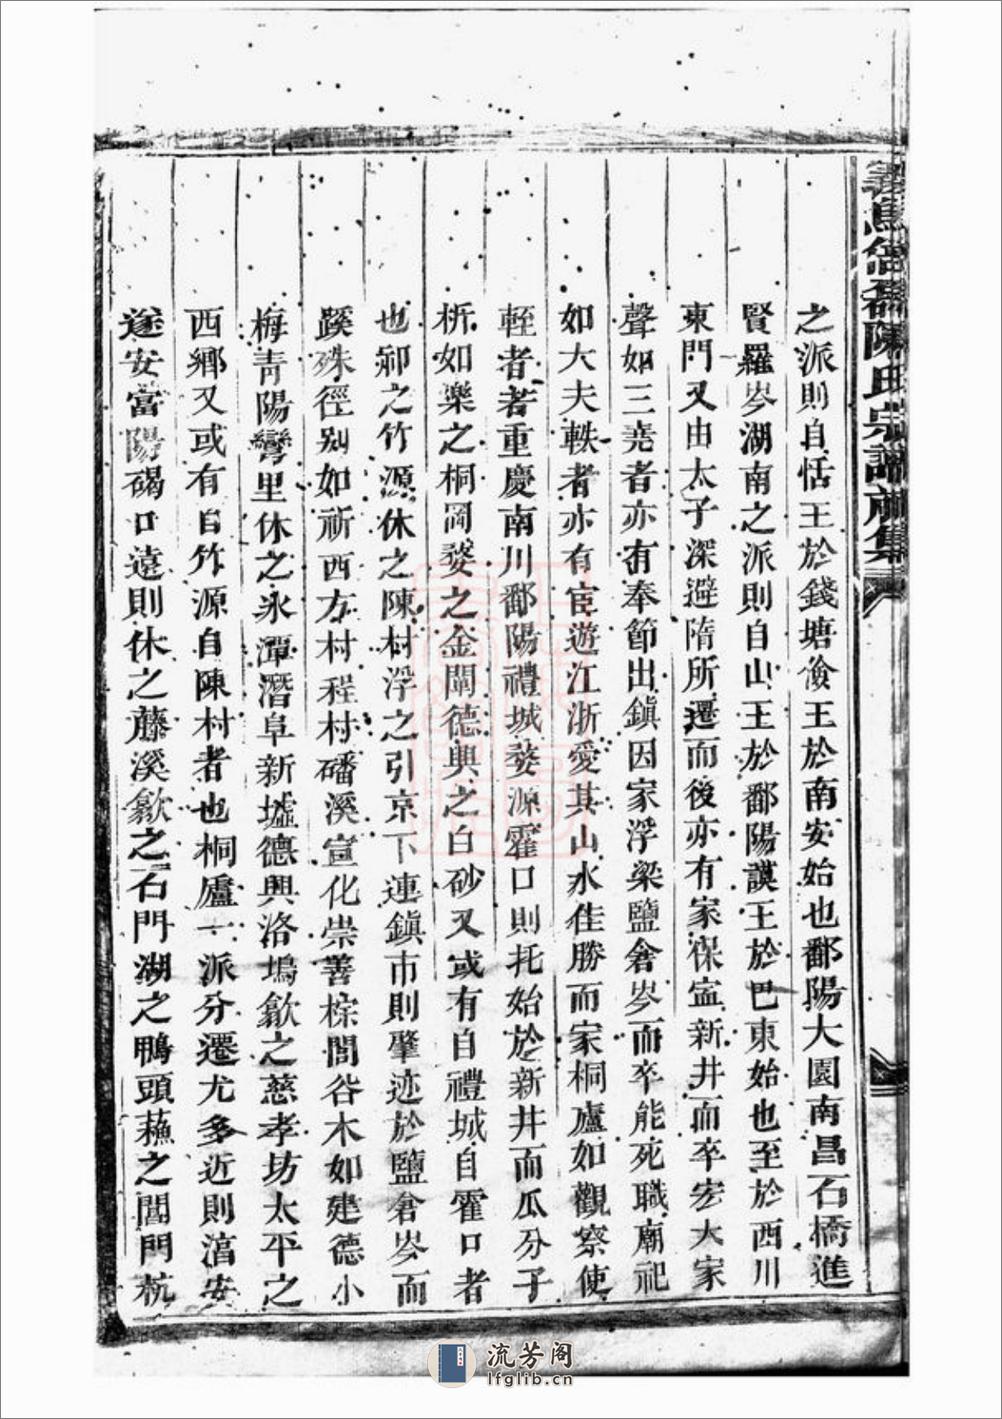 義烏倍磊陳氏宗譜前集
之派則自恬王於錢塘儉王於南安始也鄱陽大園南昌石橋進
賢羅岑湖南之派則自山王於鄱陽謨王於巴東始也至於西川
東門又由太子深避隋所遷而後亦有家保寍新井而卒宏大家
聲如三堯者亦有奉節出鎮因家浮梁鹽倉岺而卒能死職廟祀
如大夫軼者亦有宦遊江浙愛其山水佳勝而家桐廬如觀察使
輊者若重慶南川鄱陽禮城婺源霍口則托始於新井而瓜分子
析如樂之桐岡婺之金閶德興之白砂又或有自禮城自霍口者
也祁之竹源休之陳村浮之引京下連鎮市則肇迹於鹽倉岺而
蹊殊徑别如祈西方村程村磻溪宣化崇善棕閭谷木如建德小
梅青陽彎里休之氷潭潛阜新墟德興洛塢歙之慈孝坊太平之
西鄉又或有自竹源自陳村者也桐廬一派分遷尤多近則湻安
遂安當陽碣口遠則休之藤溪歙之石門湖之鴨頭蘓之閶門杭
流芳阁
lfglib.cn